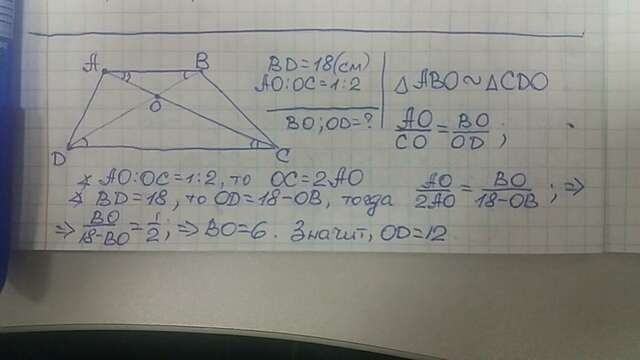 A B
O
D C
BD=18(см)
AO:OC=1:2
BO; OD=?
△ABO ~ △CDO
AO/CO = BO/OD ;
∠ AO:OC=1:2, то OC=2AO
∠ BD=18, то OD=18-OB, тогда AO/2AO = BO/18-OB ; ⇒
⇒ BO/18-BO = 1/2 ; ⇒ BO=6. Значит, OD=12.